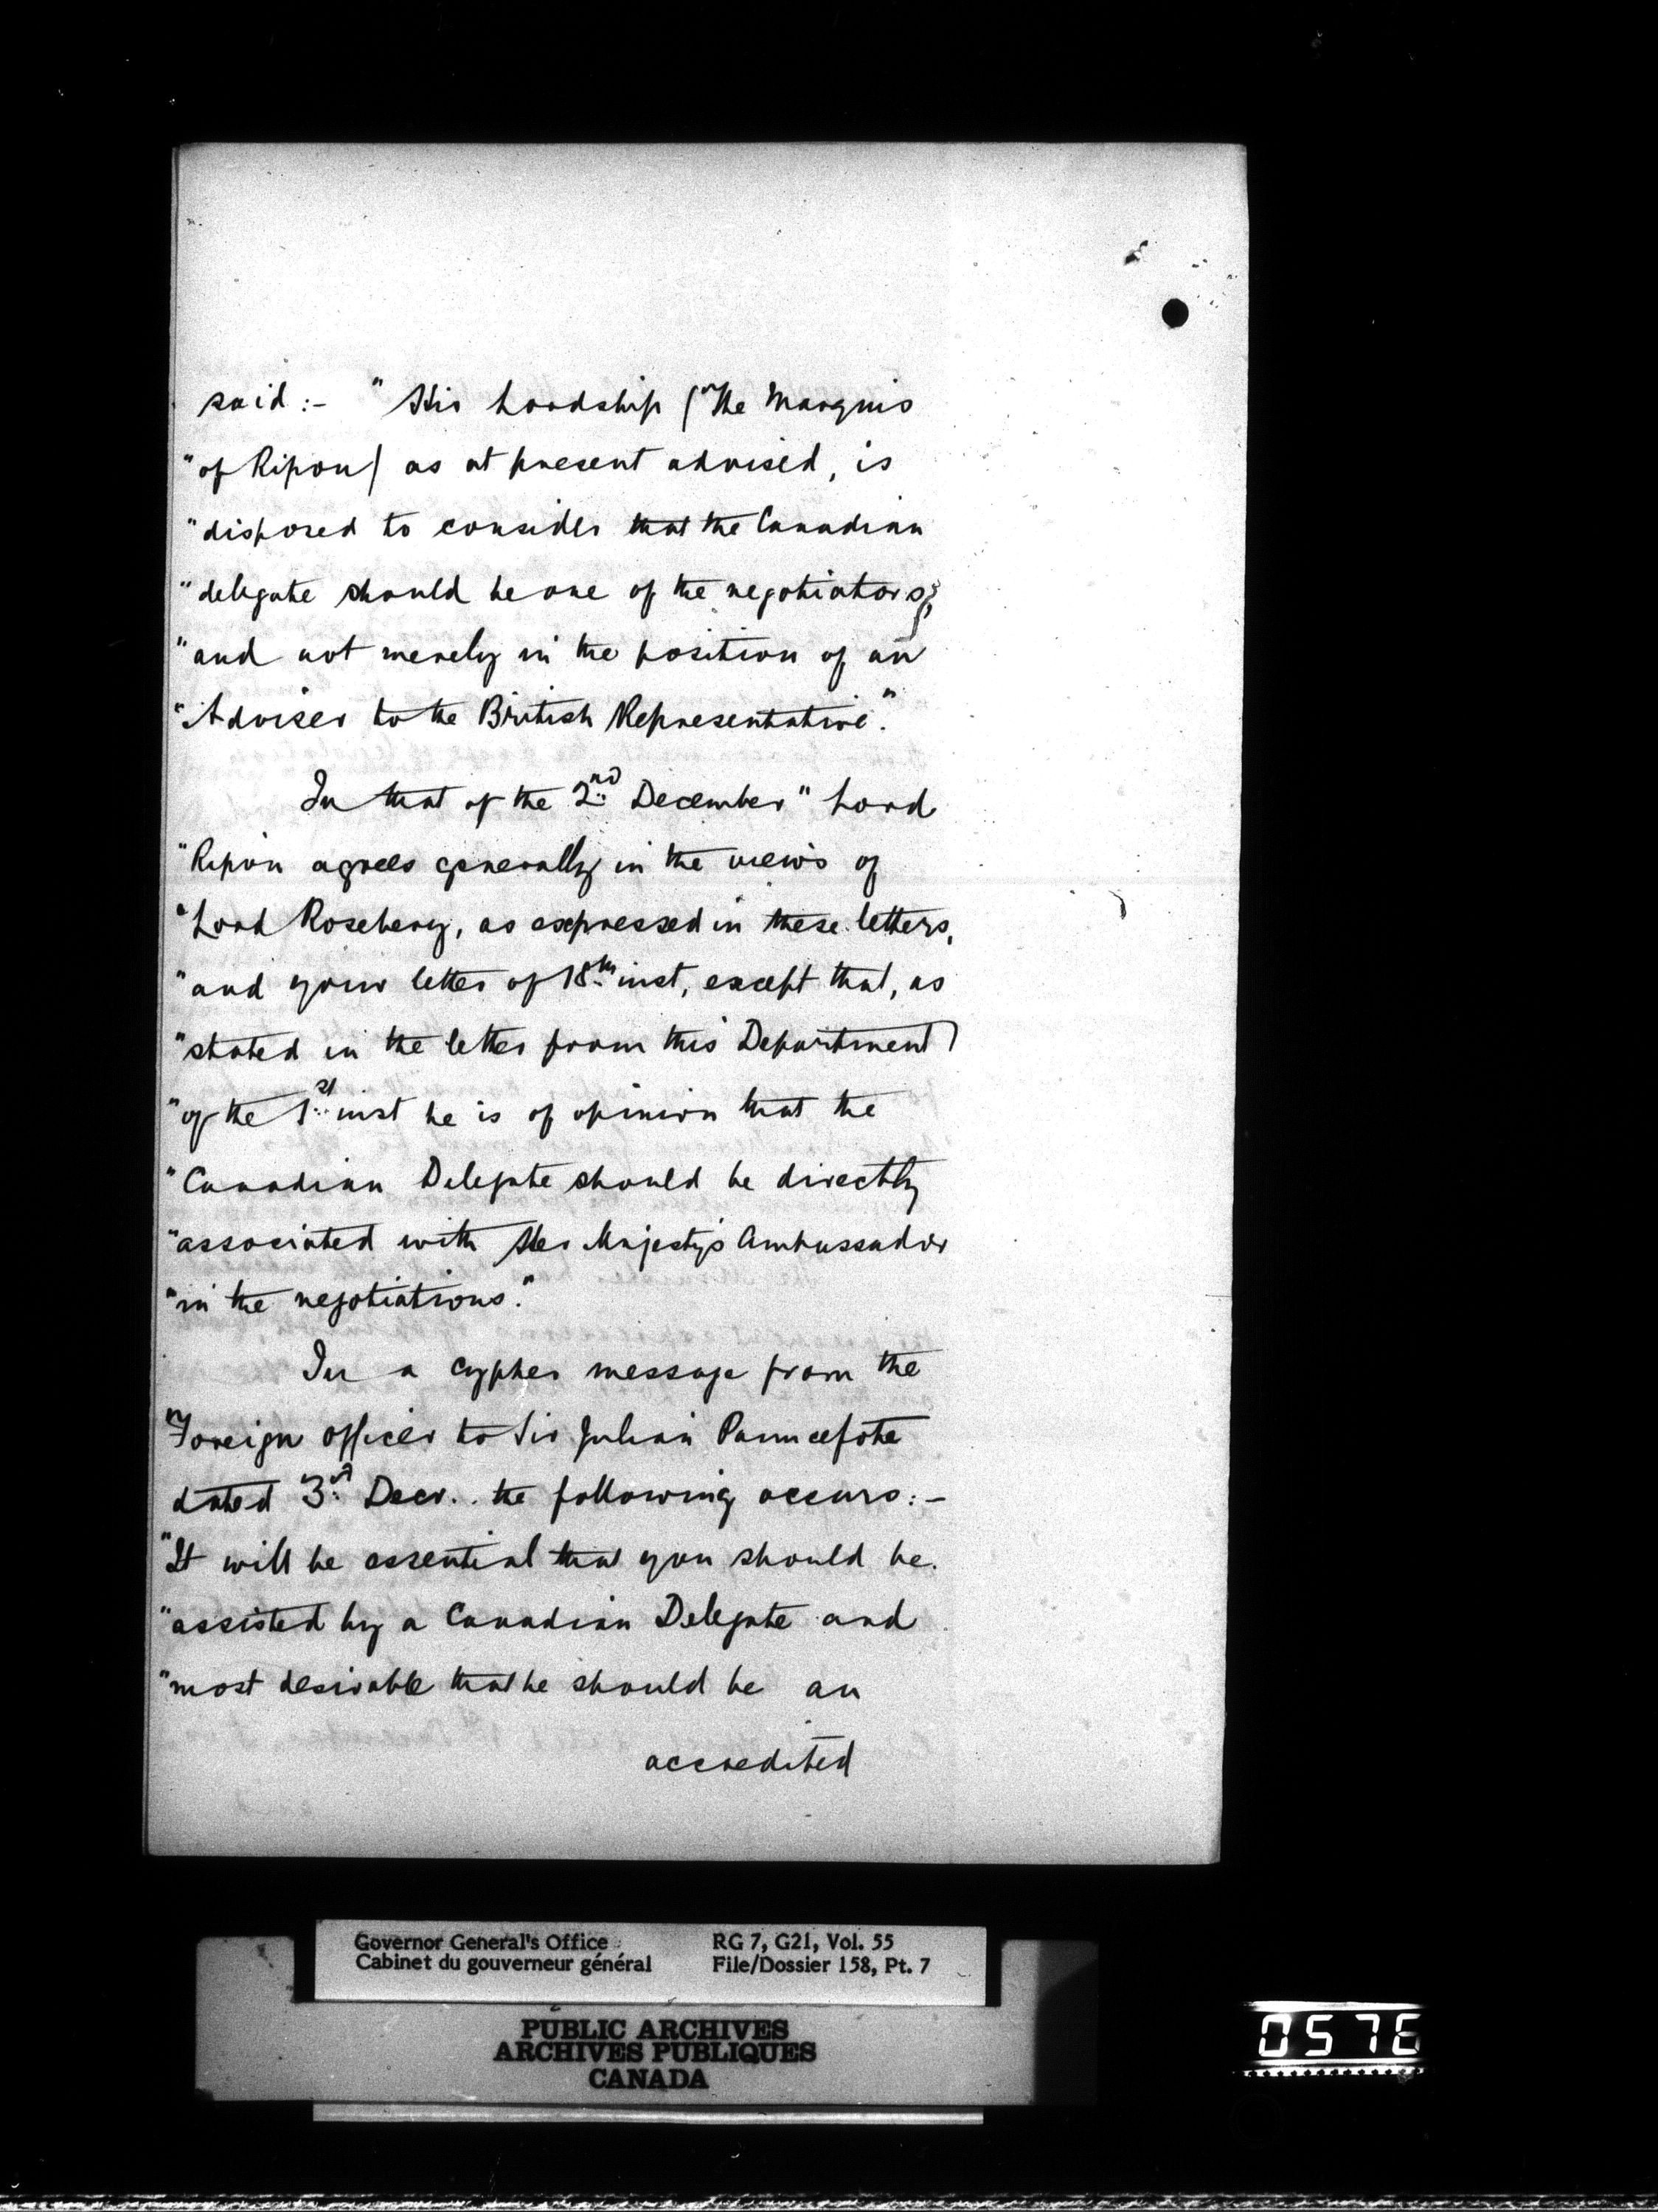 said:- "His Lordship (The Marquis
"of Ripon) as at present advised, is
"disposed to consider that the Canadian
"delegate should be one of the negotiators,
"and not merely in the position of an
"Adviser to the British Representative."
In that of the 2nd December "Lord
"Ripon agrees generally in the views of
"Lord Rosebery, as expressed in these letters,
"and your letter of 18th inst, except that, as
"stated in the letter from this Department
"of the 1st inst he is of opinion that the
"Canadian Delegate should be directly
"associated with Her Majesty's Ambassador
"in the negotiations."
In a cypher message from the
"Foreign Officer to Sir Julian Pauncefote
dated 3rd Decr. the following occurs:-
"It will be essential that you should be
"assisted by a Canadian Delegate and
"most desirable that he should be an
accredited
Governor General's Office RG 7, G21, Vol. 55
Cabinet du gouverneur général File/Dossier 158, Pt. 7
PUBLIC ARCHIVES
ARCHIVES PUBLIQUES
CANADA
0576